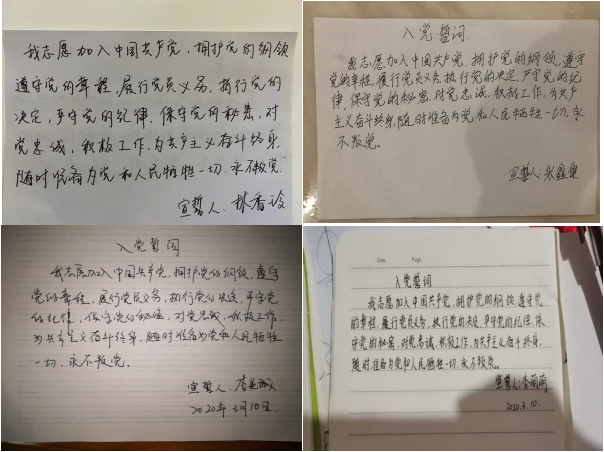 我志愿加入中国共产党，拥护党的纲领
遵守党的章程，履行党员义务，执行党的
决定，严守党的纪律，保守党的秘密，对
党忠诚，积极工作，为共产主义奋斗终身，
随时准备为党和人民牺牲一切，永不叛党。
宣誓人：林香
入党誓词
我志愿加入中国共产党，拥护党的纲领，遵守
党的章程，履行党员义务，执行党的决定，严守党的纪
律，保守党的秘密，对党忠诚，积极工作，为共产
主义奋斗终身，随时准备为党和人民牺牲一切，永
不叛党。
宣誓人：张鑫
入党誓词
我志愿加入中国共产党，拥护党的纲领，遵守
党的章程，履行党员义务，执行党的决定，严守党
的纪律，保守党的秘密，对党忠诚，积极工作，
为共产主义奋斗终身，随时准备为党和人民牺牲
一切，永不叛党。
宣誓人：李
2020年3月10日
Date Page
入党誓词
我志愿加入中国共产党，拥护党的纲领，遵守党
的章程，履行党员义务，执行党的决定，严守党的纪律，保
守党的秘密，对党忠诚，积极工作，为共产主义奋斗终身，
随时准备为党和人民牺牲一切，永不叛党。
宣誓人：李萌萌
2020.3.10.